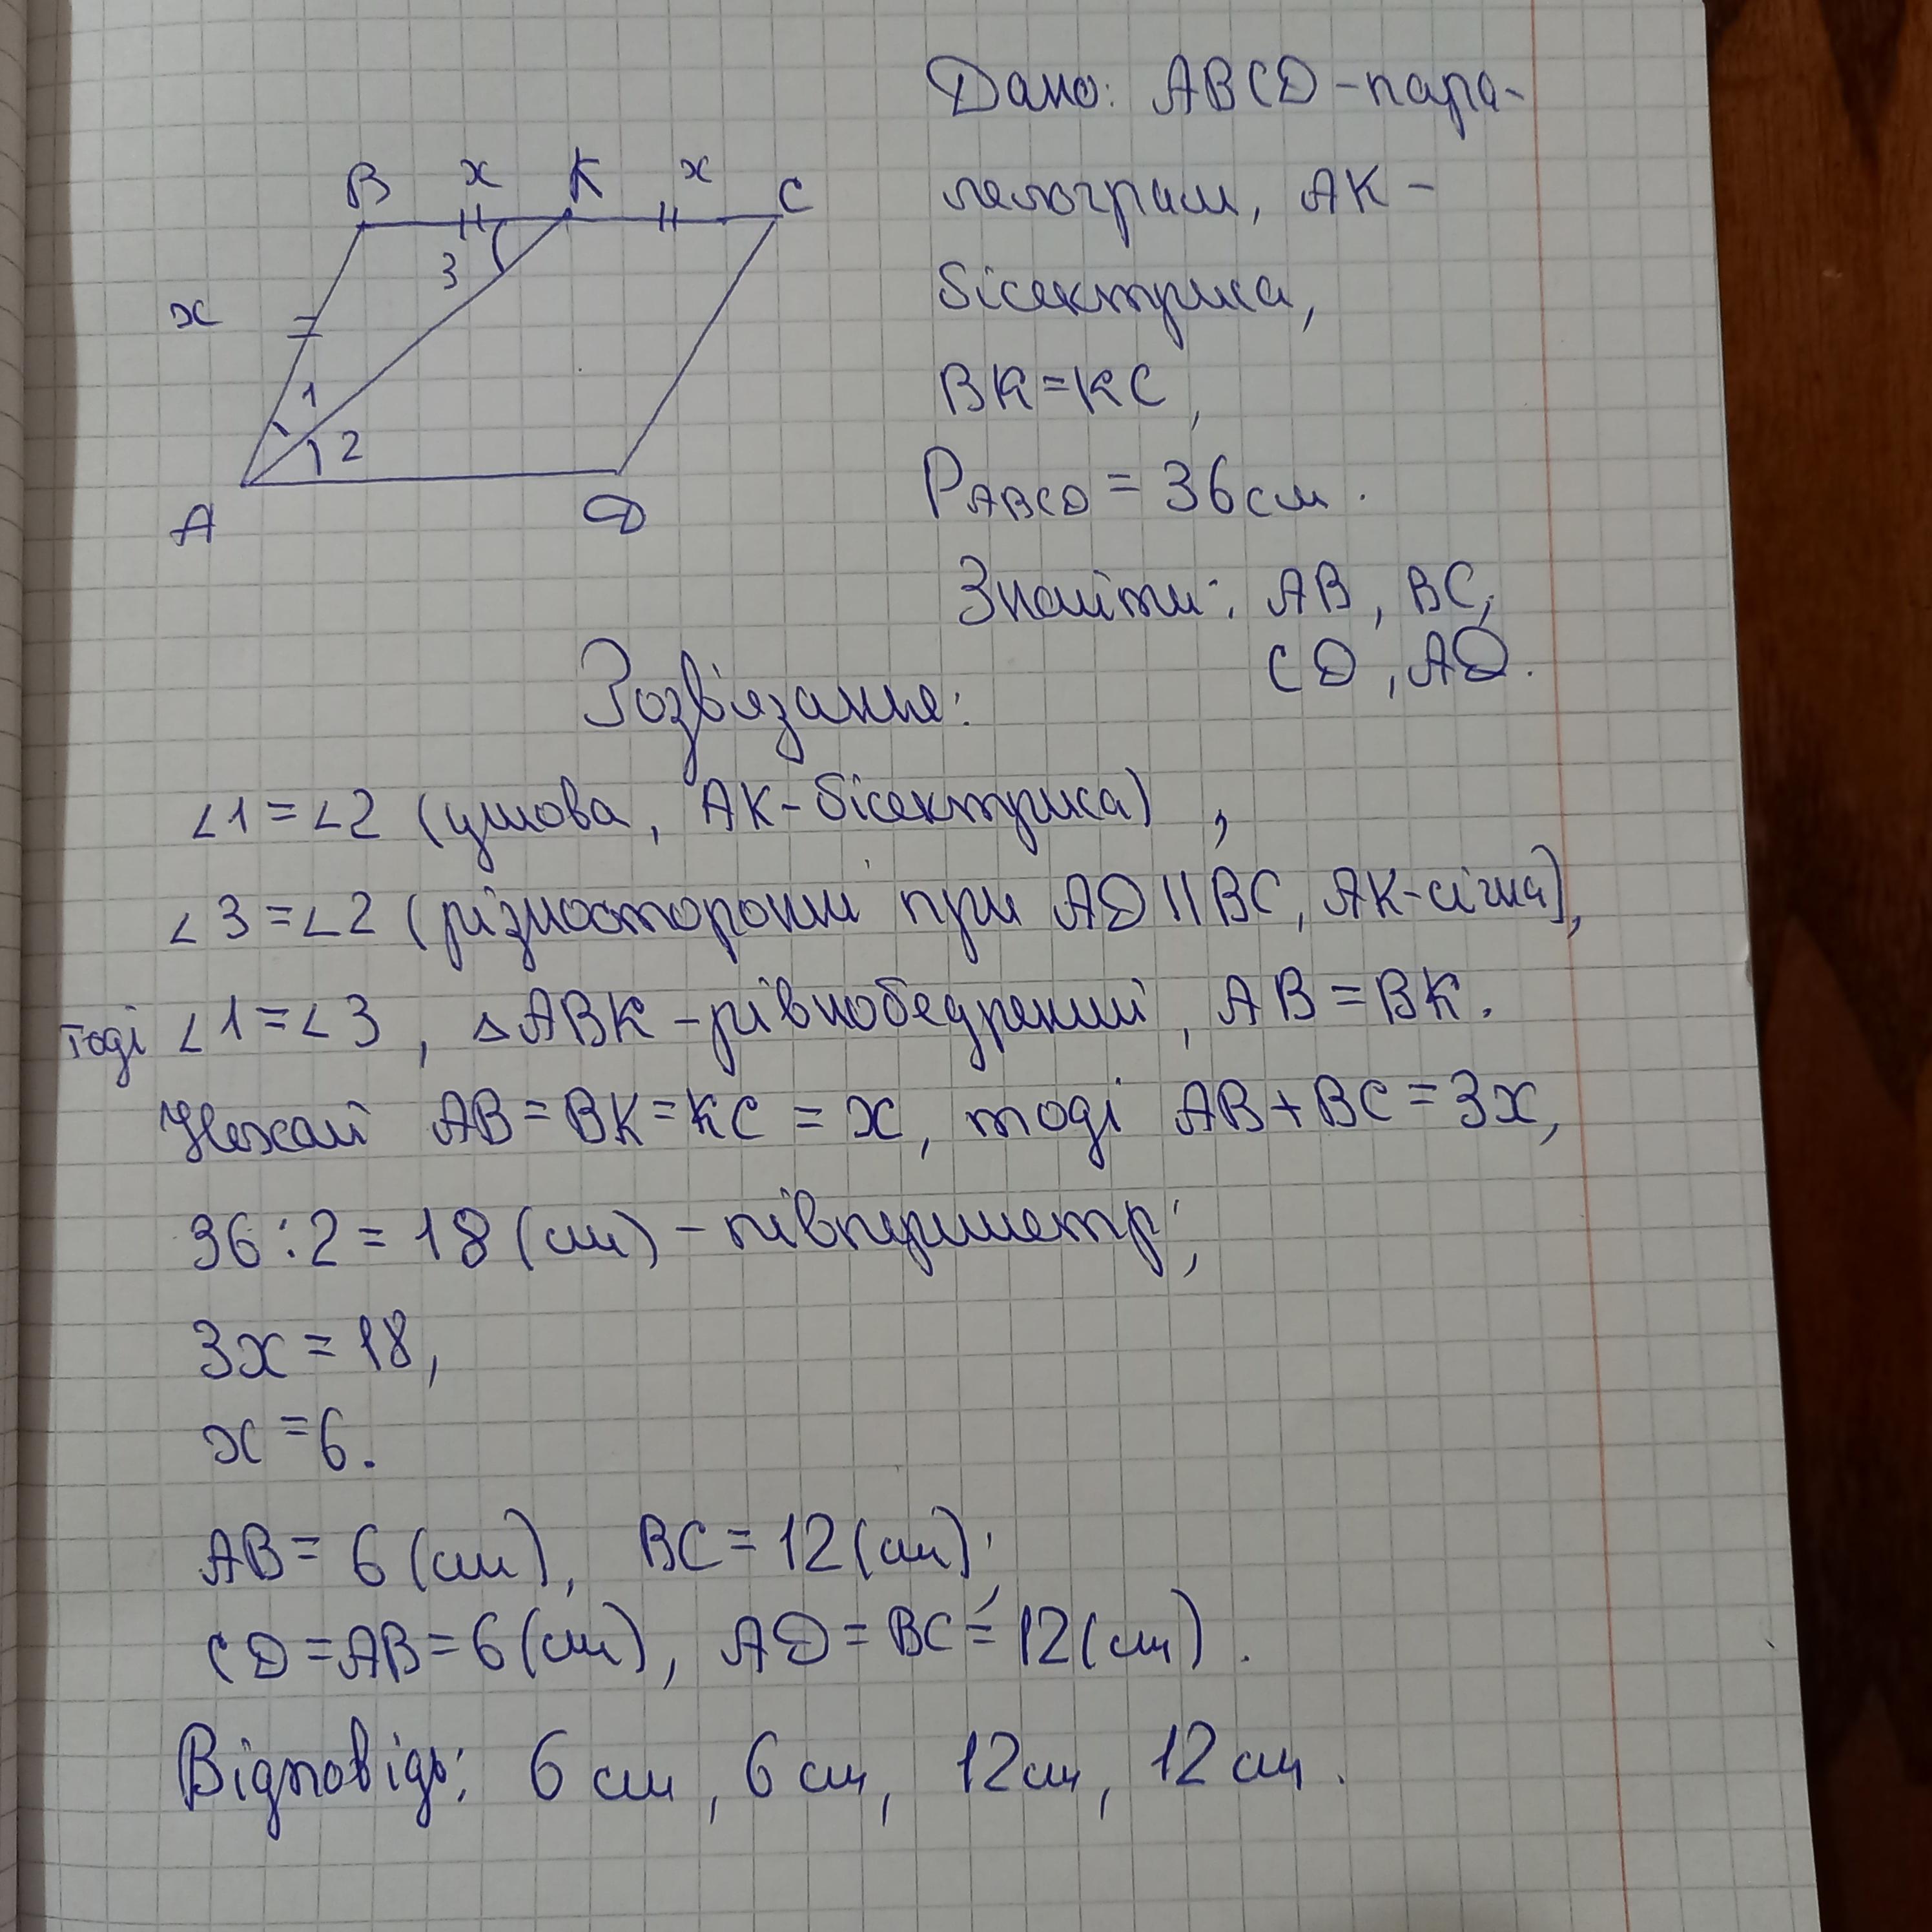 Дано: ABCD - пара-
лелограм, AK -
бісектриса,
BK = KC,
P ABCD = 36 см.
Знайти: AB, BC,
CD, AD.
B x K x C
3
x
1
2
A D
Розв'язання:
∠1 = ∠2 (умова, AK - бісектриса),
∠3 = ∠2 (різносторонні при AD || BC, AK - січна),
тоді ∠1 = ∠3, △ABK - рівнобедрений, AB = BK.
Нехай AB = BK = KC = x, тоді AB + BC = 3x,
36 : 2 = 18 (см) - півпериметр;
3x = 18,
x = 6.
AB = 6 (см), BC = 12 (см);
CD = AB = 6 (см), AD = BC = 12 (см).
Відповідь: 6 см, 6 см, 12 см, 12 см.